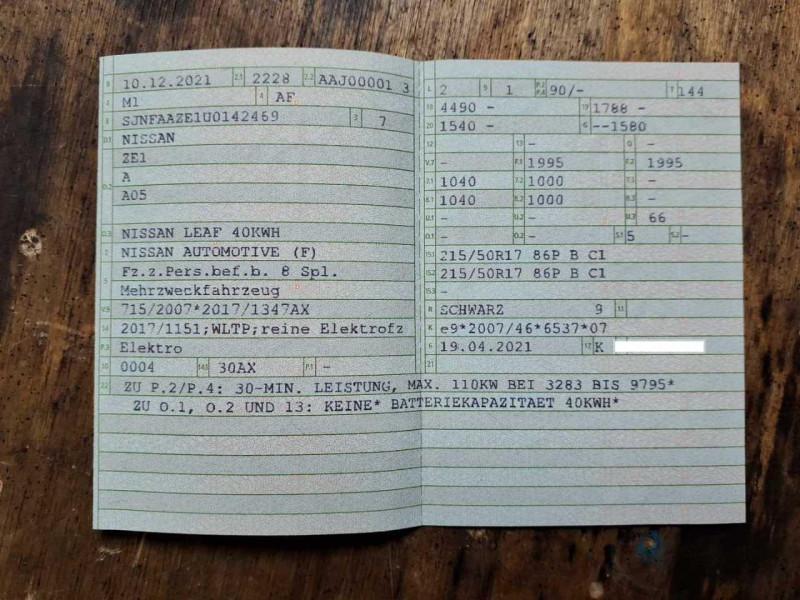 B 10.12.2021 2.1 2228 2.2 AAJ00001 3
J M1 4 AF
E SJNFAAZE1U0142469 3 7
D.1 NISSAN
ZE1
D.2 A
A05
D.3 NISSAN LEAF 40KWH
2 NISSAN AUTOMOTIVE (F)
5 Fz.z.Pers.bef.b. 8 Spl.
Mehrzweckfahrzeug
V.9 715/2007*2017/1347AX
14 2017/1151;WLTP;reine Elektrofz
P.3 Elektro
10 0004 14.1 30AX P.1 -
22 ZU P.2/P.4: 30-MIN. LEISTUNG, MAX. 110KW BEI 3283 BIS 9795*
ZU O.1, O.2 UND 13: KEINE* BATTERIEKAPAZITAET 40KWH*
L 2 9 1 P.2 P.4 90/- T 144
18 4490 - 19 1788 -
20 1540 - G --1580
12 - 13 - Q -
V.7 - F.1 1995 F.2 1995
7.1 1040 7.2 1000 7.3 -
8.1 1040 8.2 1000 8.3 -
U.1 - U.2 - U.3 66
O.1 - O.2 - S.1 5 S.2 -
15.1 215/50R17 86P B C1
15.2 215/50R17 86P B C1
15.3 -
R SCHWARZ 9 11
K e9*2007/46*6537*07
6 19.04.2021 17 K
21